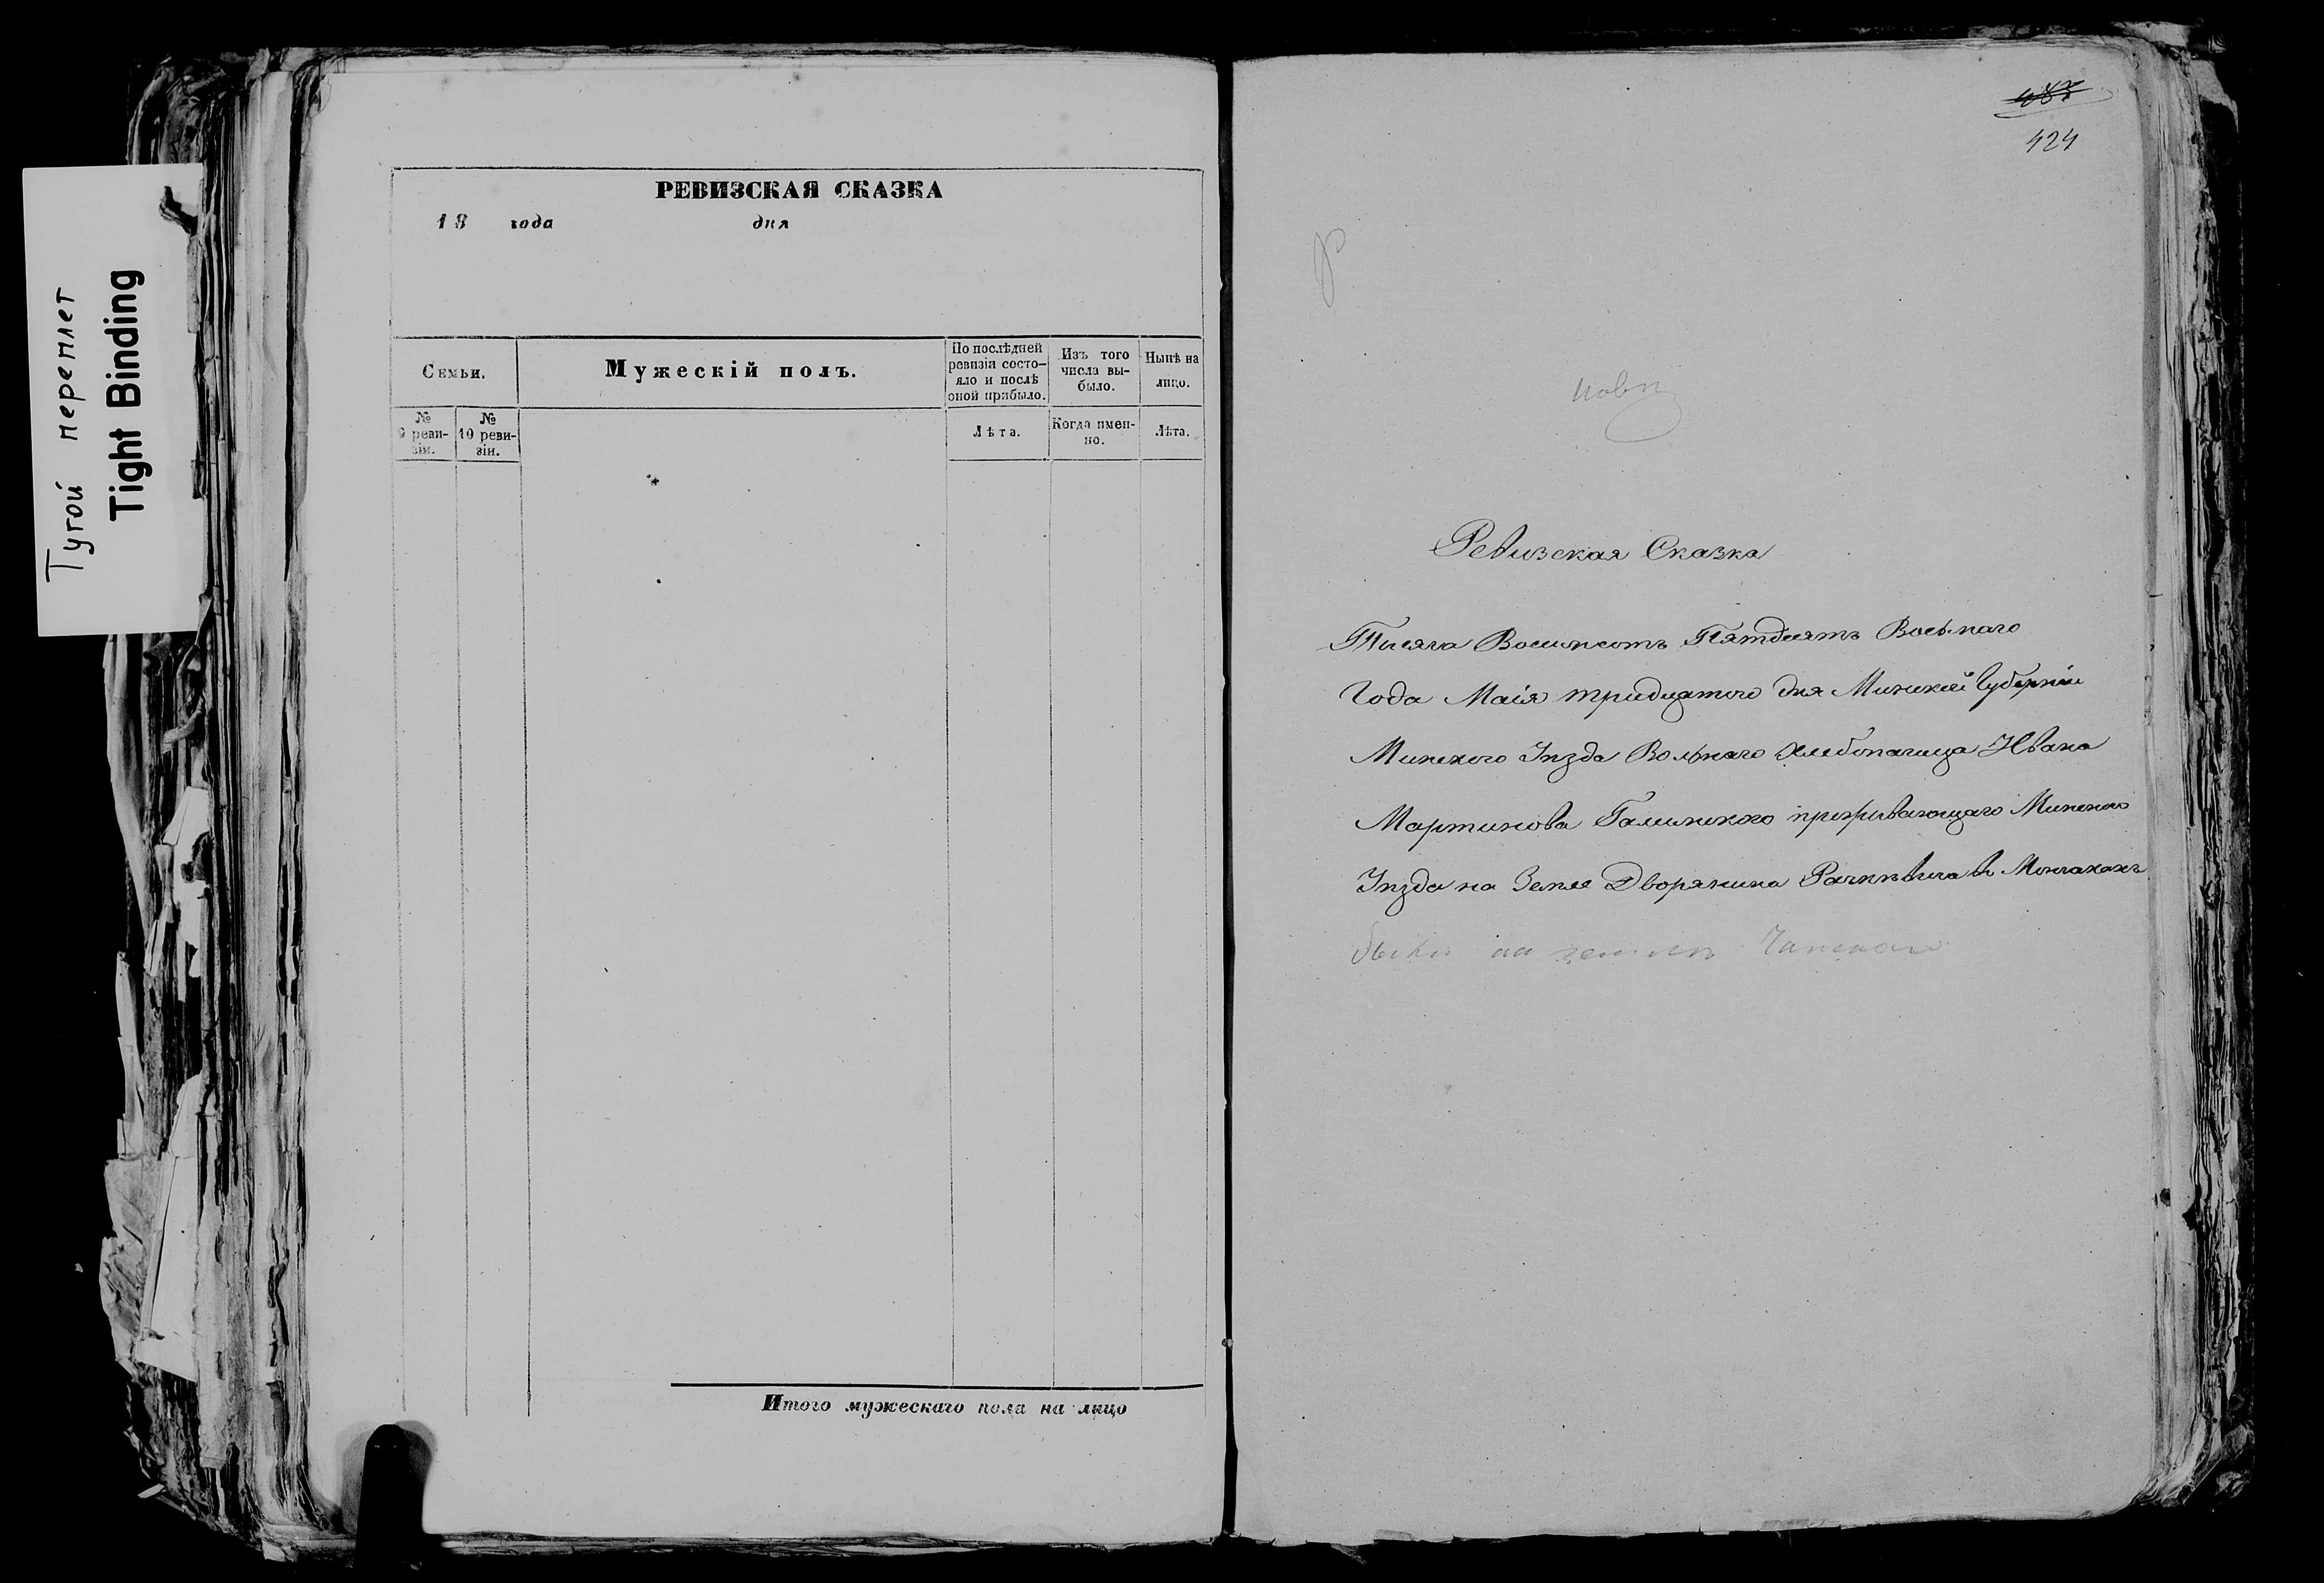 Тугой переплет
Tight Binding
РЕВИЗСКАЯ СКАЗКА
18 года дня
Семьи.
Мужескій полъ.
По послѣдней ревизіи состо-яло и послѣ оной прибыло.
Изъ того числа вы-было.
Нынѣ на лицо.
№ 9 реви-зіи.
№ 10 реви-зіи.
Лѣта.
Когда имен-но.
Лѣта.
Итого мужескаго пола на лицо
424
Ревизская Сказка
Тысяча Восимсотъ Пятдесятъ Восьмаго
Года Маія тридцятого дня Минской Губерніи
Минского Уѣзда Вольнаго Хлебопашца Ивана
Мартинова проживающаго Минского
Уѣзда на Земле Дворянина в
на землѣ Чапскаго